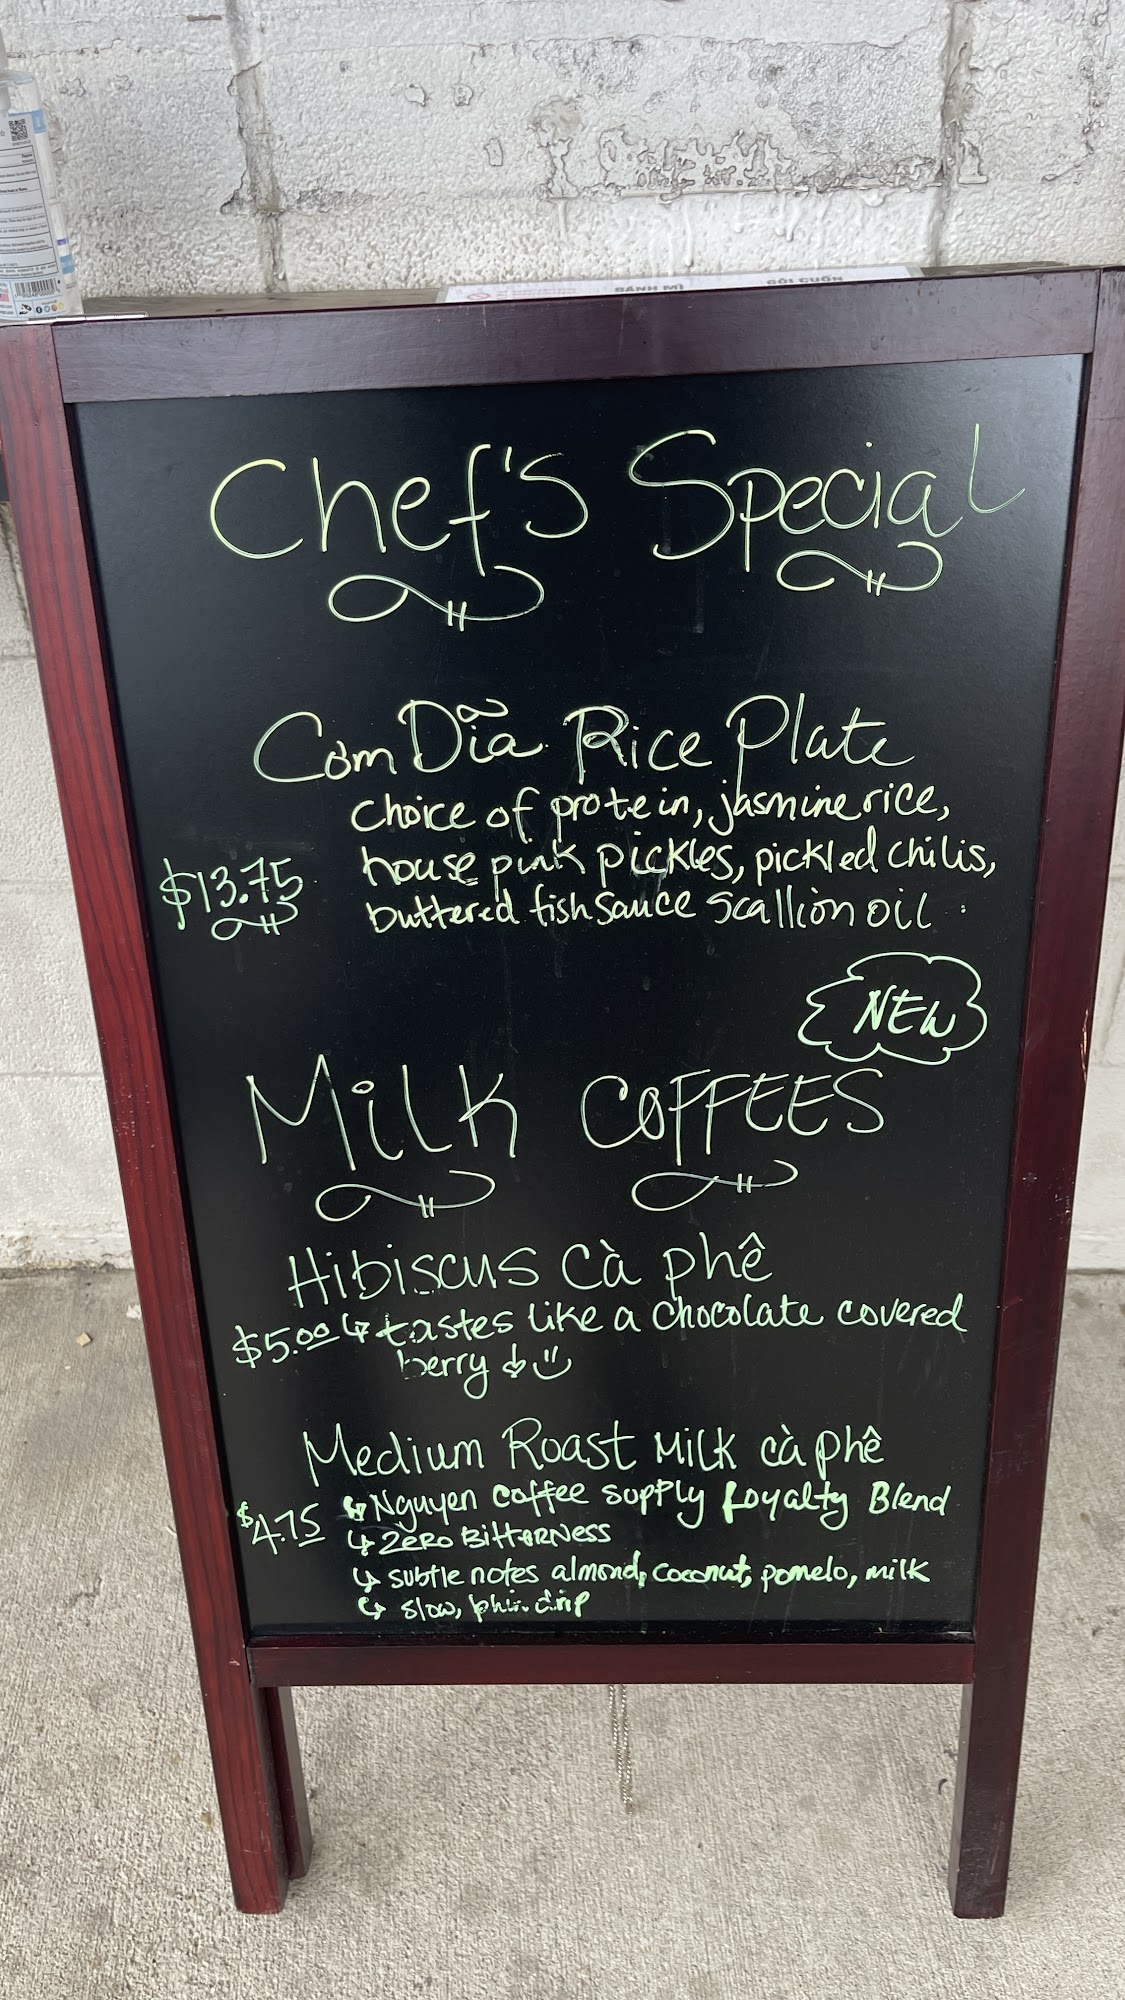 BÁNH MÌ
GỎI CUỐN
Chef's Special
Cơm Dĩa Rice Plate
choice of protein, jasmine rice,
house pink pickles, pickled chilis,
$13.75
buttered fish sauce scallion oil
NEW
MILK COFFEES
Hibiscus cà phê
$5.00 ↳ tastes like a chocolate covered
berry
Medium Roast MILK cà phê
$4.75 ↳ Nguyen coffee supply Loyalty Blend
↳ ZERO BITTERNESS
↳ subtle notes almond, coconut, pomelo, milk
↳ slow, phin drip